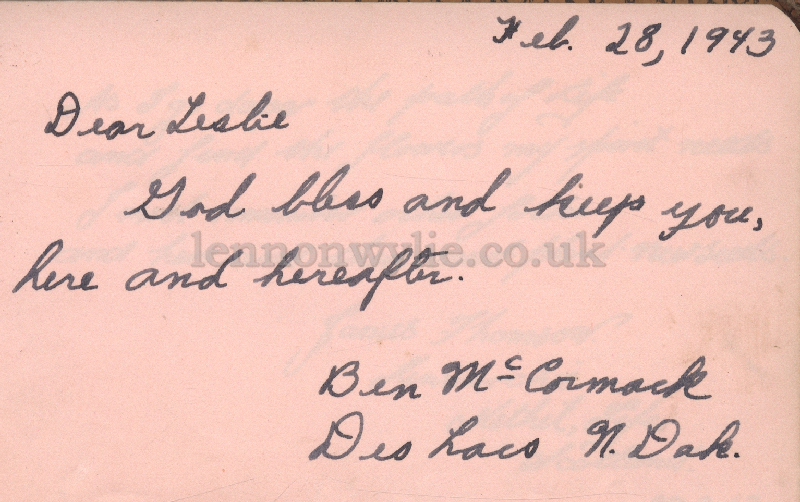 Feb. 28, 1943
Dear Leslie
God bless and keep you,
here and hereafter.
lennonwylie.co.uk
Ben McCormack
Des Lacs N. Dak.